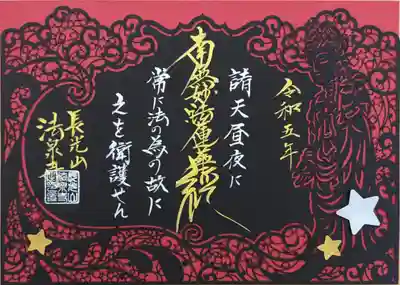 令和五年
諸天昼夜に
南無妙法蓮華経
常に法の為の故に
之を衛護せん
長光山
法泉寺